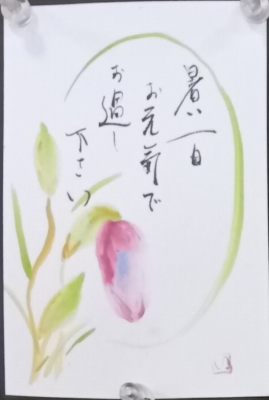 暑い一日
お元氣で
お過し
下さい